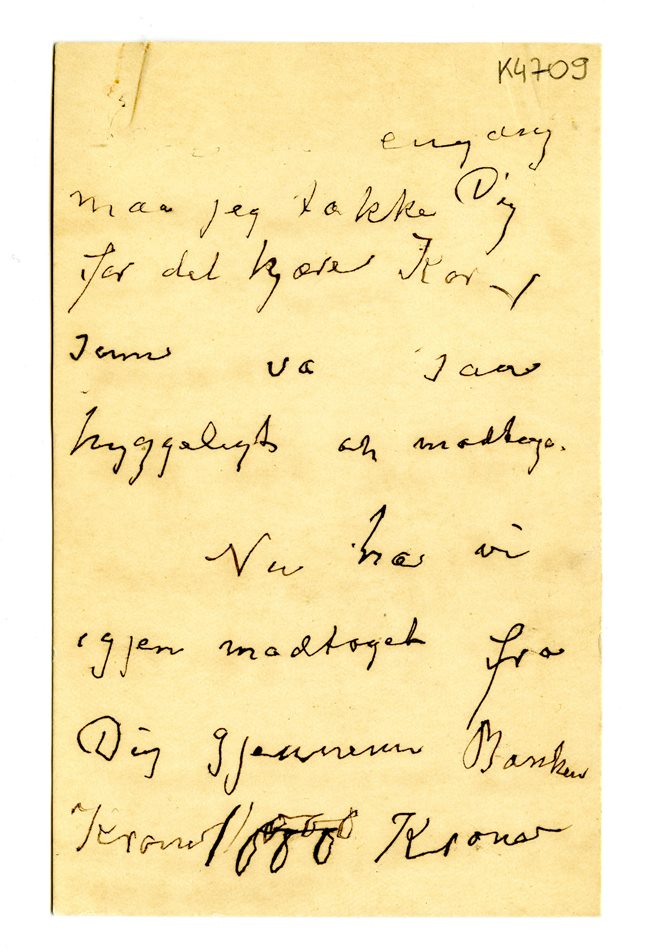 K4709
engang
maa jeg takke Dig
for det kjære Kor-
som va saa
hyggeligt at modtage.
Nu har vi
igjen modtoget fra
Dig gjennem Banken
Kroner Kroner